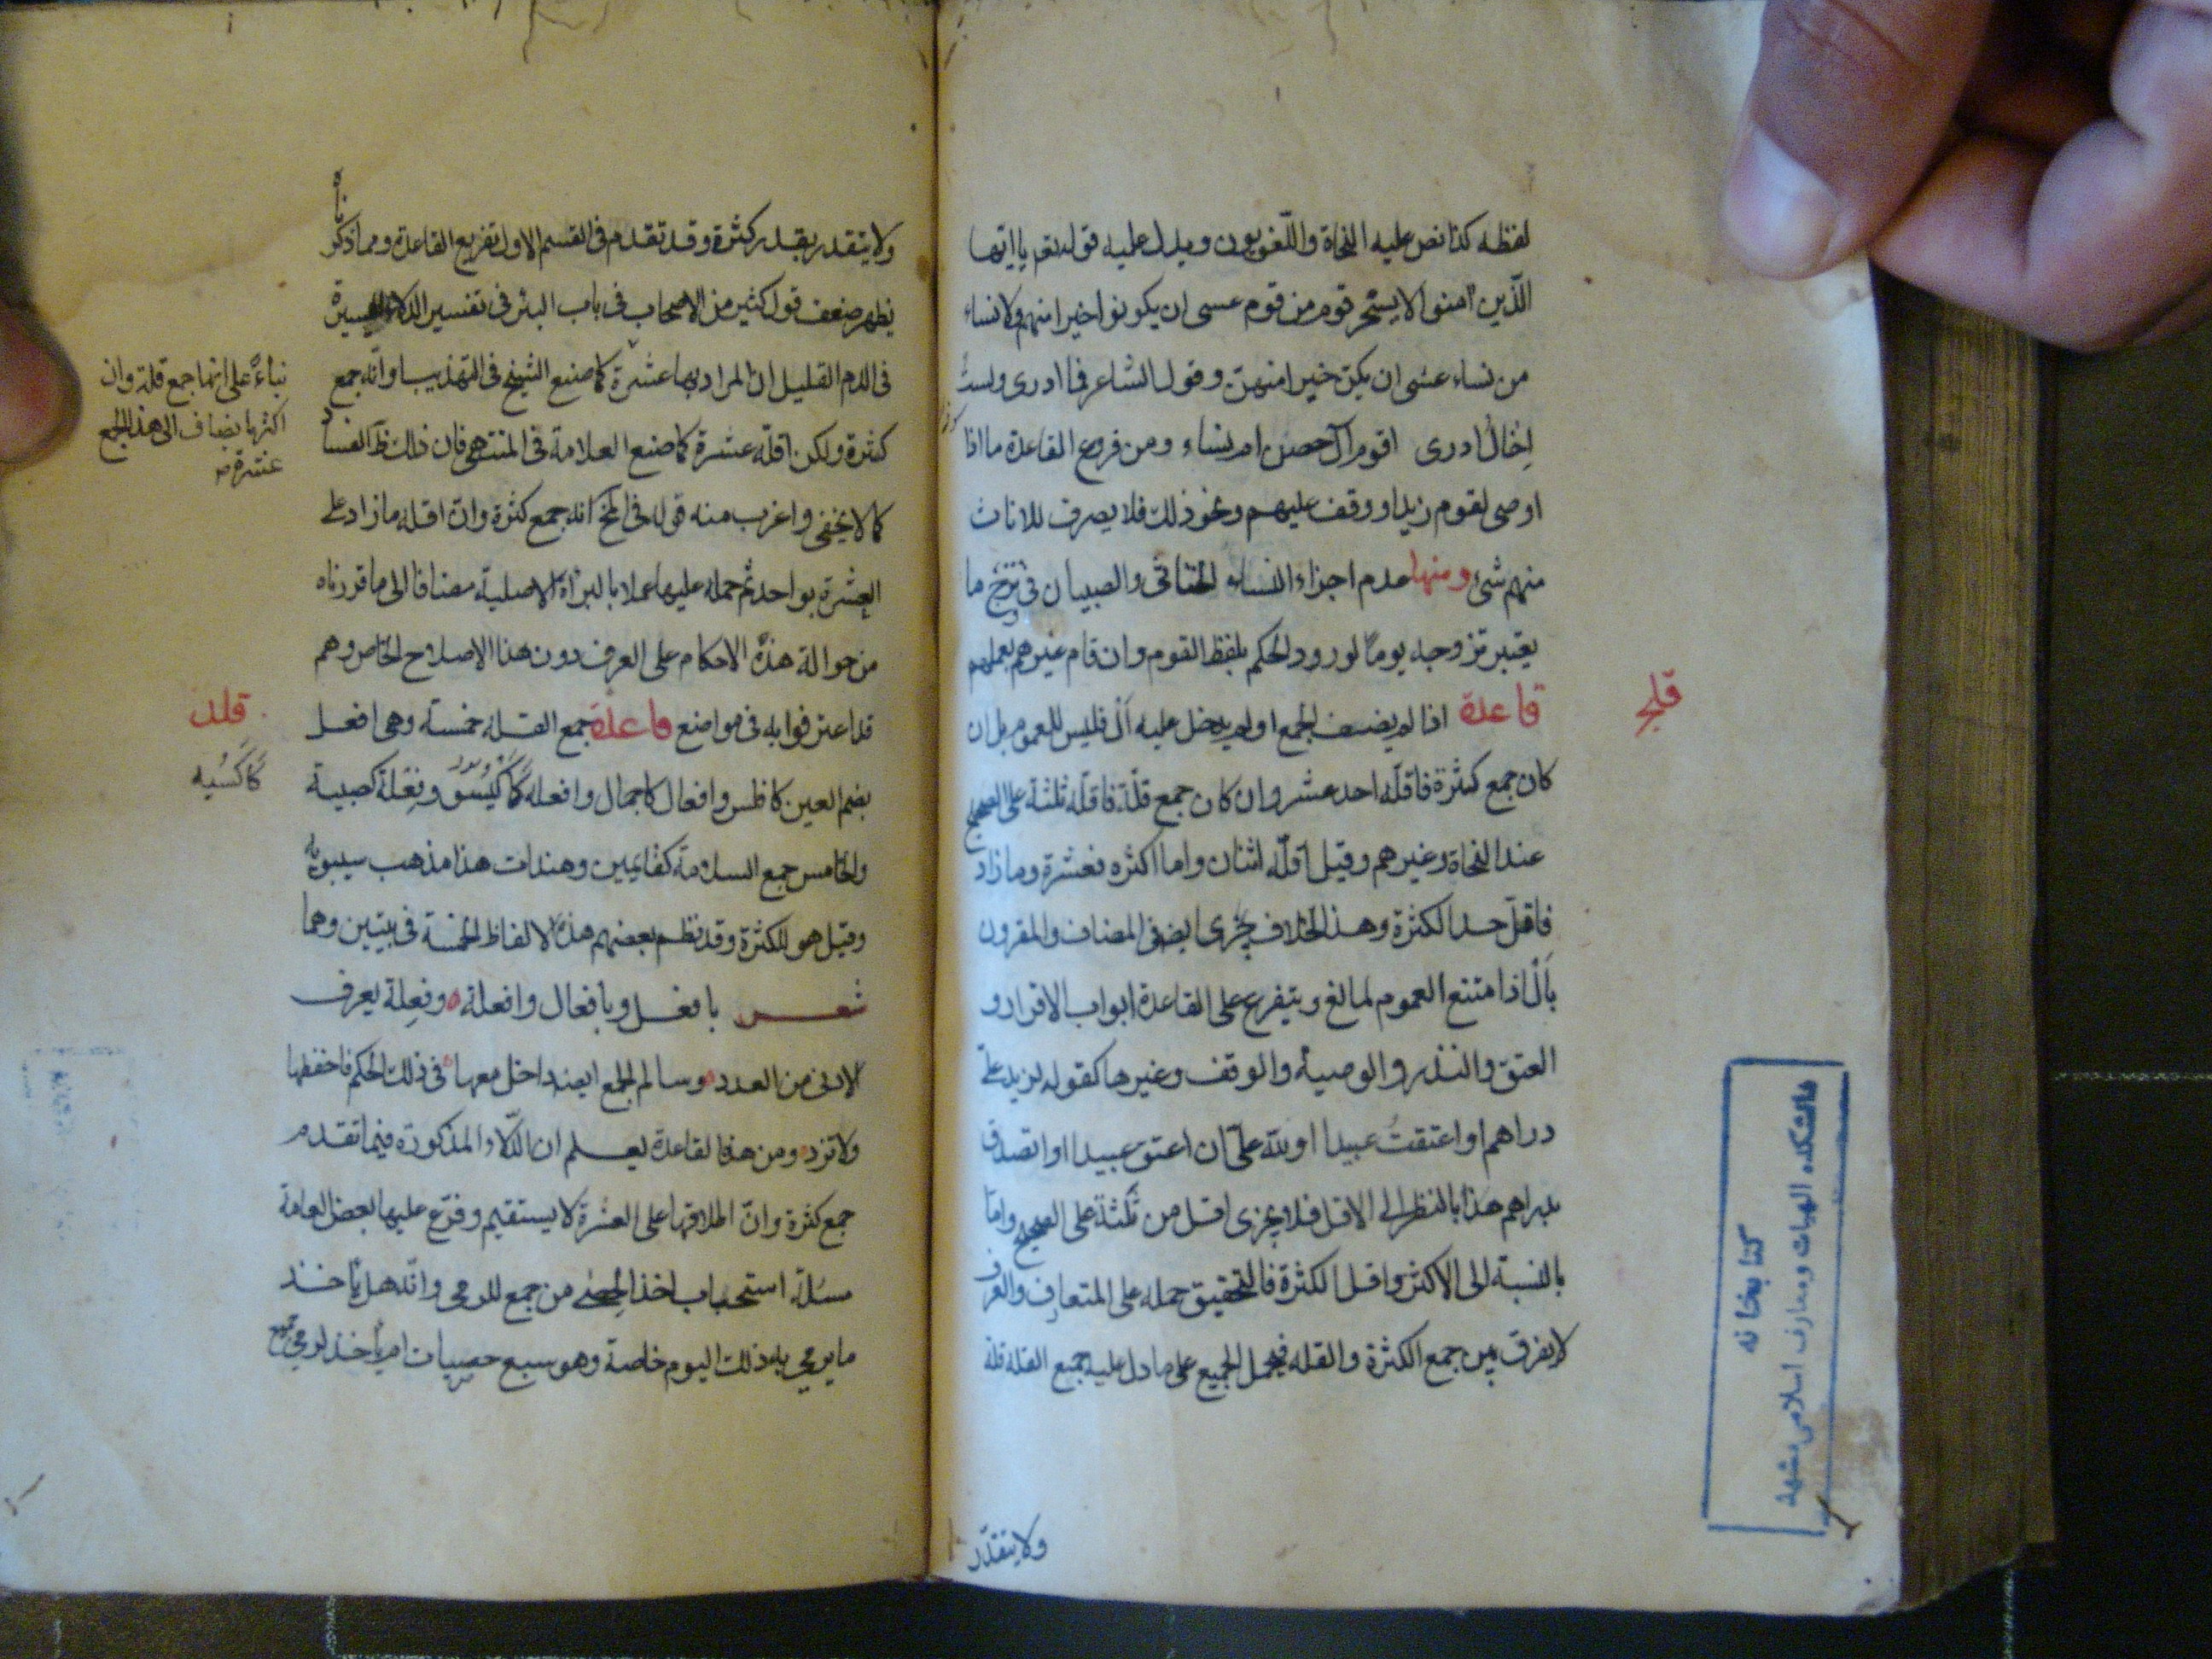 لفظه كذا نص عليه النحاة واللّغويون ويدل عليه قوله تعم يا ايّها
الّذين امنوا لا يسخر قوم من قوم عسى ان يكونوا خيرا منهم ولا نساء
من نساء عسى ان يكنّ خيرا منهنّ وقول الشاعر فما ادرى ولستُ
اِخالُ ادرى اقوم آل حصن ام نساء ومن فروع القاعدة ما اذا
اوصى لقوم زيد او وقف عليهم ونحو ذلك فلا يصرف للاناث
منهم شئ ومنها عدم اجزاء النساء الخناثى والصبيان فى نزح ما
يعتبر تزوحه يوماً لورود الحكم بلفظ القوم وان قام غيرهم بعملهم
قاعدة اذا لم يضف الجمع اولم يدخل عليه اَلْ فليس للعموم بل ان
كان جمع كثرة فاقلّه احد عشر وان كان جمع قلّة فاقلّه ثلثة على الصحيح
عند النحاة وغيرهم وقيل اقلّه اثنان واما اكثره فعشرة وما زاد
فاقلّ حد الكثرة وهذا الخلاف يجرى ايض فى المضاف والمقرون
باَلْ اذا امتنع العموم لمانع ويتفرع على القاعدة ابواب الاقرار و
العتق والنذر والوصية والوقف وغيرها كقوله لزيد علىّ
دراهم او اعتقتُ عبيدا او للّه علىّ ان اعتق عبيدا او اتصدق
بدراهم هذا بالنظر الى الاقل فلا يجزى اقل من ثلثة على الصحيح وامّا
بالنسبة الى الاكثر واقل الكثرة فالتحقيق حمله على المتعارف والعرف
لا يفرق بين جمع الكثرة والقله فيحمل الجميع على ما دل عليه جمع القله قلة
ولا يتقدّر
قلج
كتابخانه
دانشكده الهيات ومعارف اسلامى مشهد
ولا يتقدر بقدر كثرة وقد تقدم فى القسم الاول تفريع القاعدة ومما ذكرناه
يظهر ضعف قول كثير من الاصحاب فى باب البئر فى تفسير الدلاء اليسيرة
فى الدم القليل ان المراد بها عشرة كما صنع الشيخ فى التهذيب او انّه جمع
كثرة ولكن اقلّه عشرة كما صنع العلامة فى المنتهى فان ذلك ظ الفساد
كما لا يخفى واغرب منه قوله فى المخ انه جمع كثرة وانّ اقله ما زاد على
العشرة بواحد ثم حمله عليها عملا بالبراة الاصلية مضافا الى ما قررناه
من حوالة هذه الاحكام على العرف دون هذا الاصلاح الخاص وهم
قد اعترفوا به فى مواضع قاعدة جمع القله خمسة وهى افعل
بضم العين كافلس وافعال كاجمال وافعله ونِعْلة كصبية
والخامس جمع السلامة كقائمين وهندات هذا مذهب سيبويه
وقيل هو للكثرة وقد نظم بعضهم هذه الالفاظ الخمسة فى بيتين وهما
شعر بافعل وبافعال وافعلة وفعِلة يعرف
الادنى من العدد وسالم الجمع ايضا داخل معها فى ذلك الحكم فاحفظها
ولا تزد ومن هذه القاعدة يعلم ان الدّلاء المذكورة فيما تقدم
جمع كثرة وانّ اطلاقها على العشرة لا يستقيم وفرّع عليها بعض العامة
مسئلة استحباب اخذ الحصى من جمع للرمى وانّه هل ياخذ
ما يرمى به ذلك اليوم خاصة وهو سبع حصيات ام ياخذ لرمى جميع
بناءً على انها جمع قلة وان
اكثر ما يضاف الى هذا الجمع
عشرة
قلد
كأكسُيه